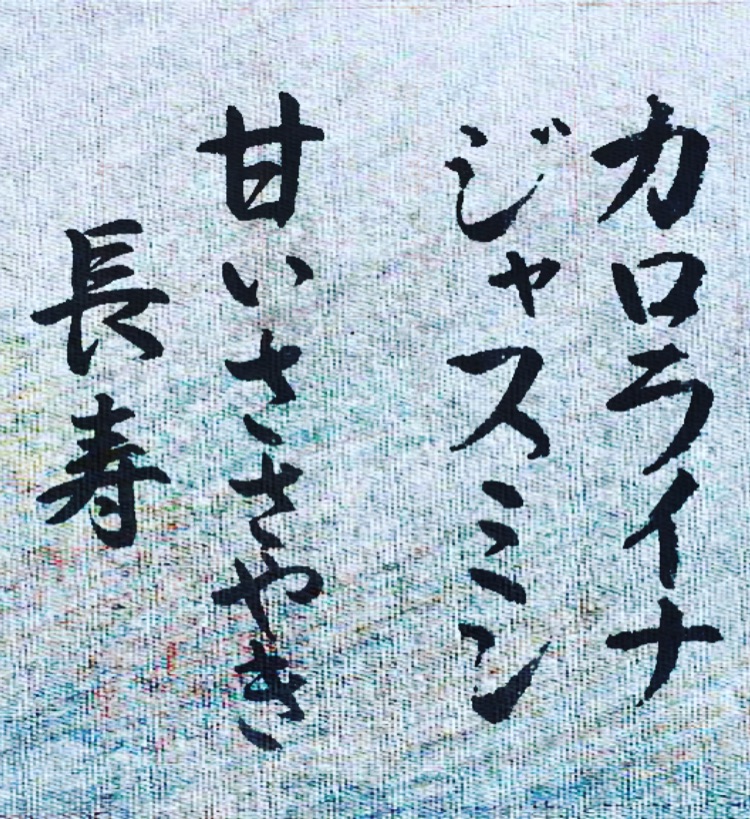 カロライナ
ジャスミン
甘いささやき
長寿